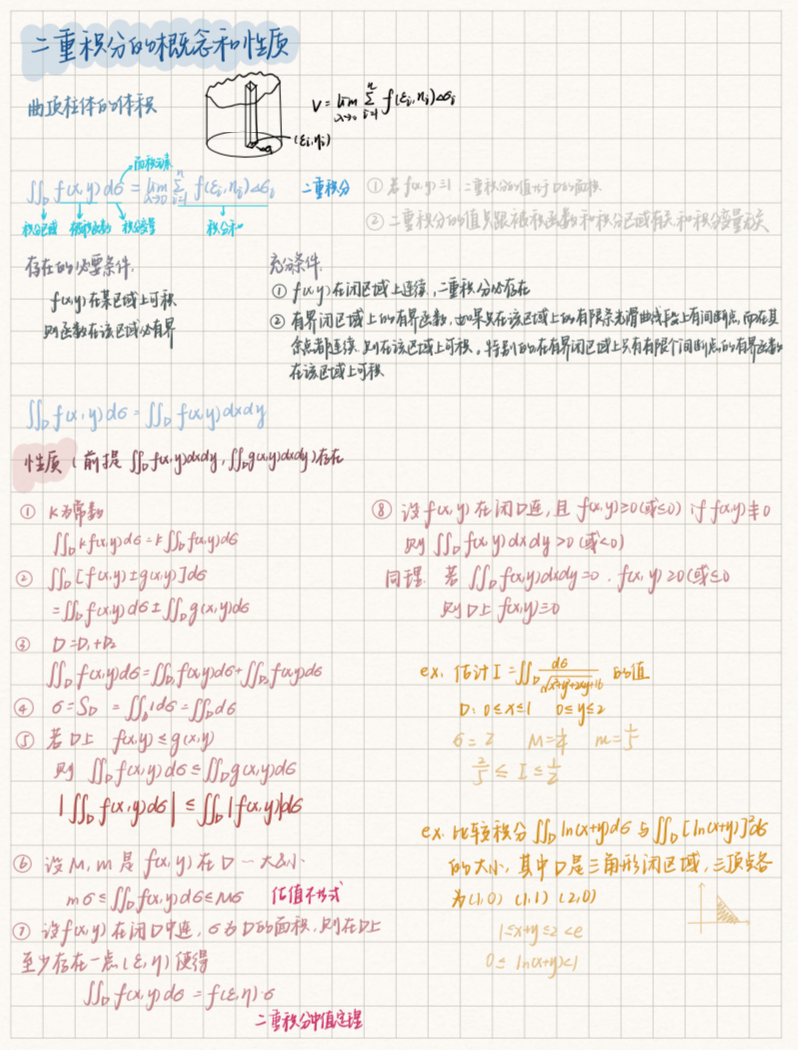 二重积分的概念和性质
曲顶柱体的体积
V = lim λ→0 Σ i=1 n f(ξi,ηi)Δσi
(ξi,ηi)
面积元素
∬D f(x,y) dσ = lim λ→0 Σ i=1 n f(ξi,ηi)Δσi
积分区域 被积函数 积分变量 积分和
二重积分 ① 若f(x,y)≡1 二重积分的值等于D的面积
② 二重积分的值只跟被积函数和积分区域有关,和积分变量无关
存在的必要条件.
f(x,y)在某区域上可积
则函数在该区域必有界
充分条件.
① f(x,y)在闭区域上连续,二重积分必存在
② 有界闭区域上的有界函数,如果只在该区域上的有限条光滑曲线段上有间断点,而在其
余点都连续.则在该区域上可积,特别的在有界闭区域上只有有限个间断点的有界函数
在该区域上可积
∬D f(x,y)dσ = ∬D f(x,y)dxdy
性质 (前提 ∬D f(x,y)dxdy, ∬D g(x,y)dxdy)存在
① k为常数
∬D kf(x,y)dσ = k∬D f(x,y)dσ
② ∬D [f(x,y)±g(x,y)]dσ
= ∬D f(x,y)dσ ± ∬D g(x,y)dσ
③ D=D1+D2
∬D f(x,y)dσ = ∬D1 f(x,y)dσ + ∬D2 f(x,y)dσ
④ σ=SD = ∬D 1dσ = ∬D dσ
⑤ 若D上 f(x,y)≤g(x,y)
则 ∬D f(x,y)dσ ≤ ∬D g(x,y)dσ
|∬D f(x,y)dσ| ≤ ∬D |f(x,y)|dσ
⑥ 设M,m是f(x,y)在D一大与小
mσ ≤ ∬D f(x,y)dσ ≤ Mσ 估值不等式
⑦ 设f(x,y)在闭D中连,σ为D的面积,则在D上
至少存在一点(ξ,η)使得
∬D f(x,y)dσ = f(ξ,η)·σ
二重积分中值定理
⑧ 设f(x,y)在闭D连,且 f(x,y)≥0(或≤0) if f(x,y)≢0
则 ∬D f(x,y)dxdy>0 (或<0)
同理. 若 ∬D f(x,y)dxdy=0 . f(x,y)≥0(或≤0
则D上 f(x,y)≡0
ex. 估计 I = ∬D dσ/√(x²+y²+2xy+16) 的值
D: 0≤x≤1 0≤y≤2
σ=2 M=1/4 m=1/5
2/5 ≤ I ≤ 1/2
ex. 比较积分 ∬D ln(x+y)dσ 与 ∬D [ln(x+y)]²dσ
的大小,其中D是三角形闭区域,三顶点各
为(1,0) (1,1) (2,0)
1≤x+y≤2<e
0≤ ln(x+y)<1